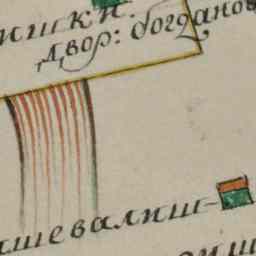 ишки.
двор: богданов
ашевалиш-